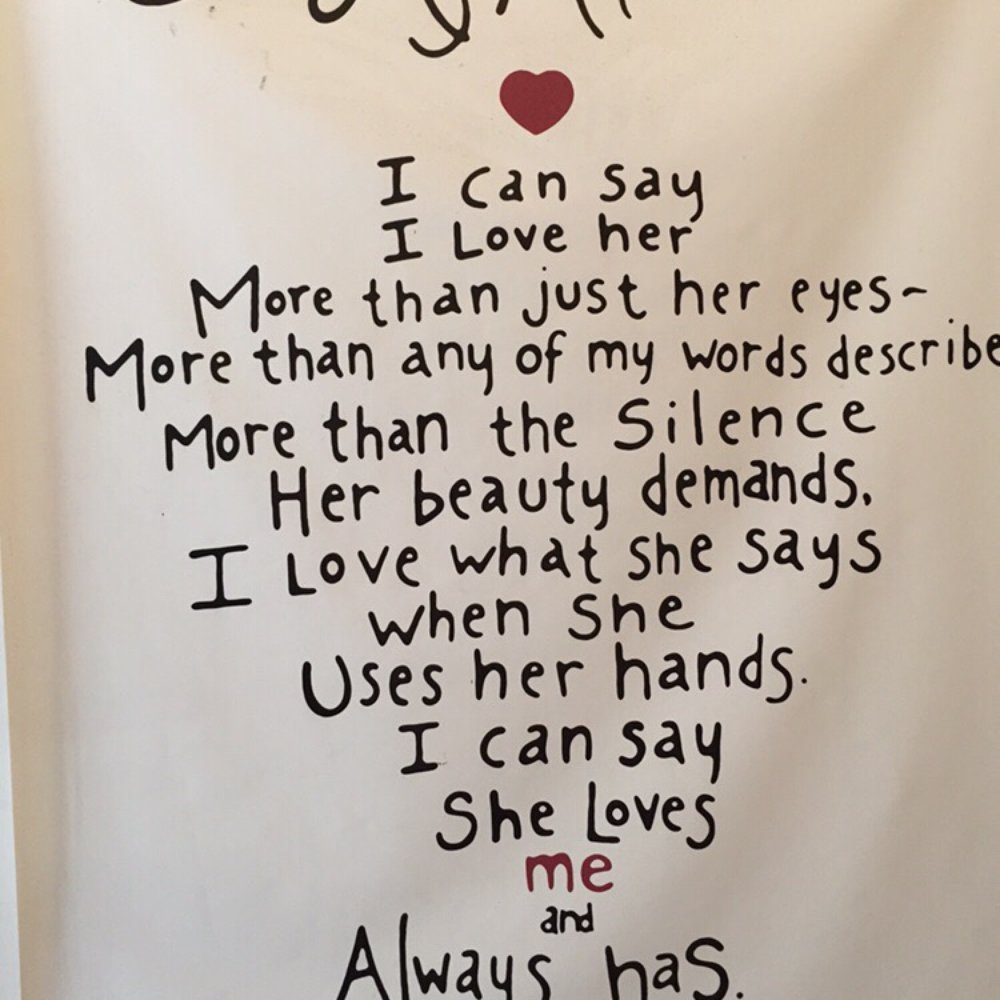 I can say
I Love her
More than just her eyes~
More than any of my words describe
More than the Silence
Her beauty demands.
I Love what she says
when she
Uses her hands.
I can say
She Loves
me
and
Always has.